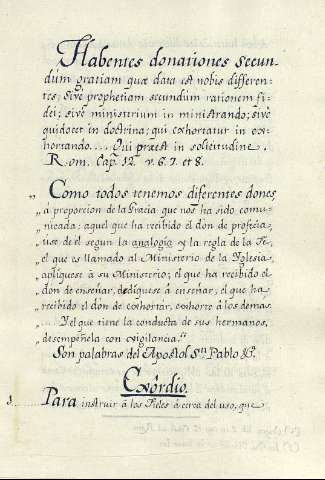 Habentes donationes secun-
dum gratiam quæ data est nobis differen-
tes; sivè prophetiam secundum rationem fi-
dei; sivè ministerium in ministrando; sivè
qui docet in doctrina; qui exhortatur in ex-
hortando.... Qui præest in solicitudine.
Rom. Cap. 12. v. 6. 7. et 8.
„ Como todos tenemos diferentes dones,
„ á proporcion de la Gracia que nos ha sido comu-
„ nicada: aquel que ha recibido el don de profecia,
„ use de él segun la analogía y la regla de la Fe,
„ el que es llamado al Ministerio de la Yglesia,
„ apliquese á su Ministerio; el que ha recibido el
„ don de enseñar, dediquese á enseñar; el que ha
„ recibido el don de exhortar, exhorte á los demas.
„ Y el que tiene la conducta de sus hermanos,
„ desempeñela con vigilancia."
Son palabras del Apostol Sn. Pablo &c.
Exórdio.
Para instruir á los Fieles á cerca del uso, que